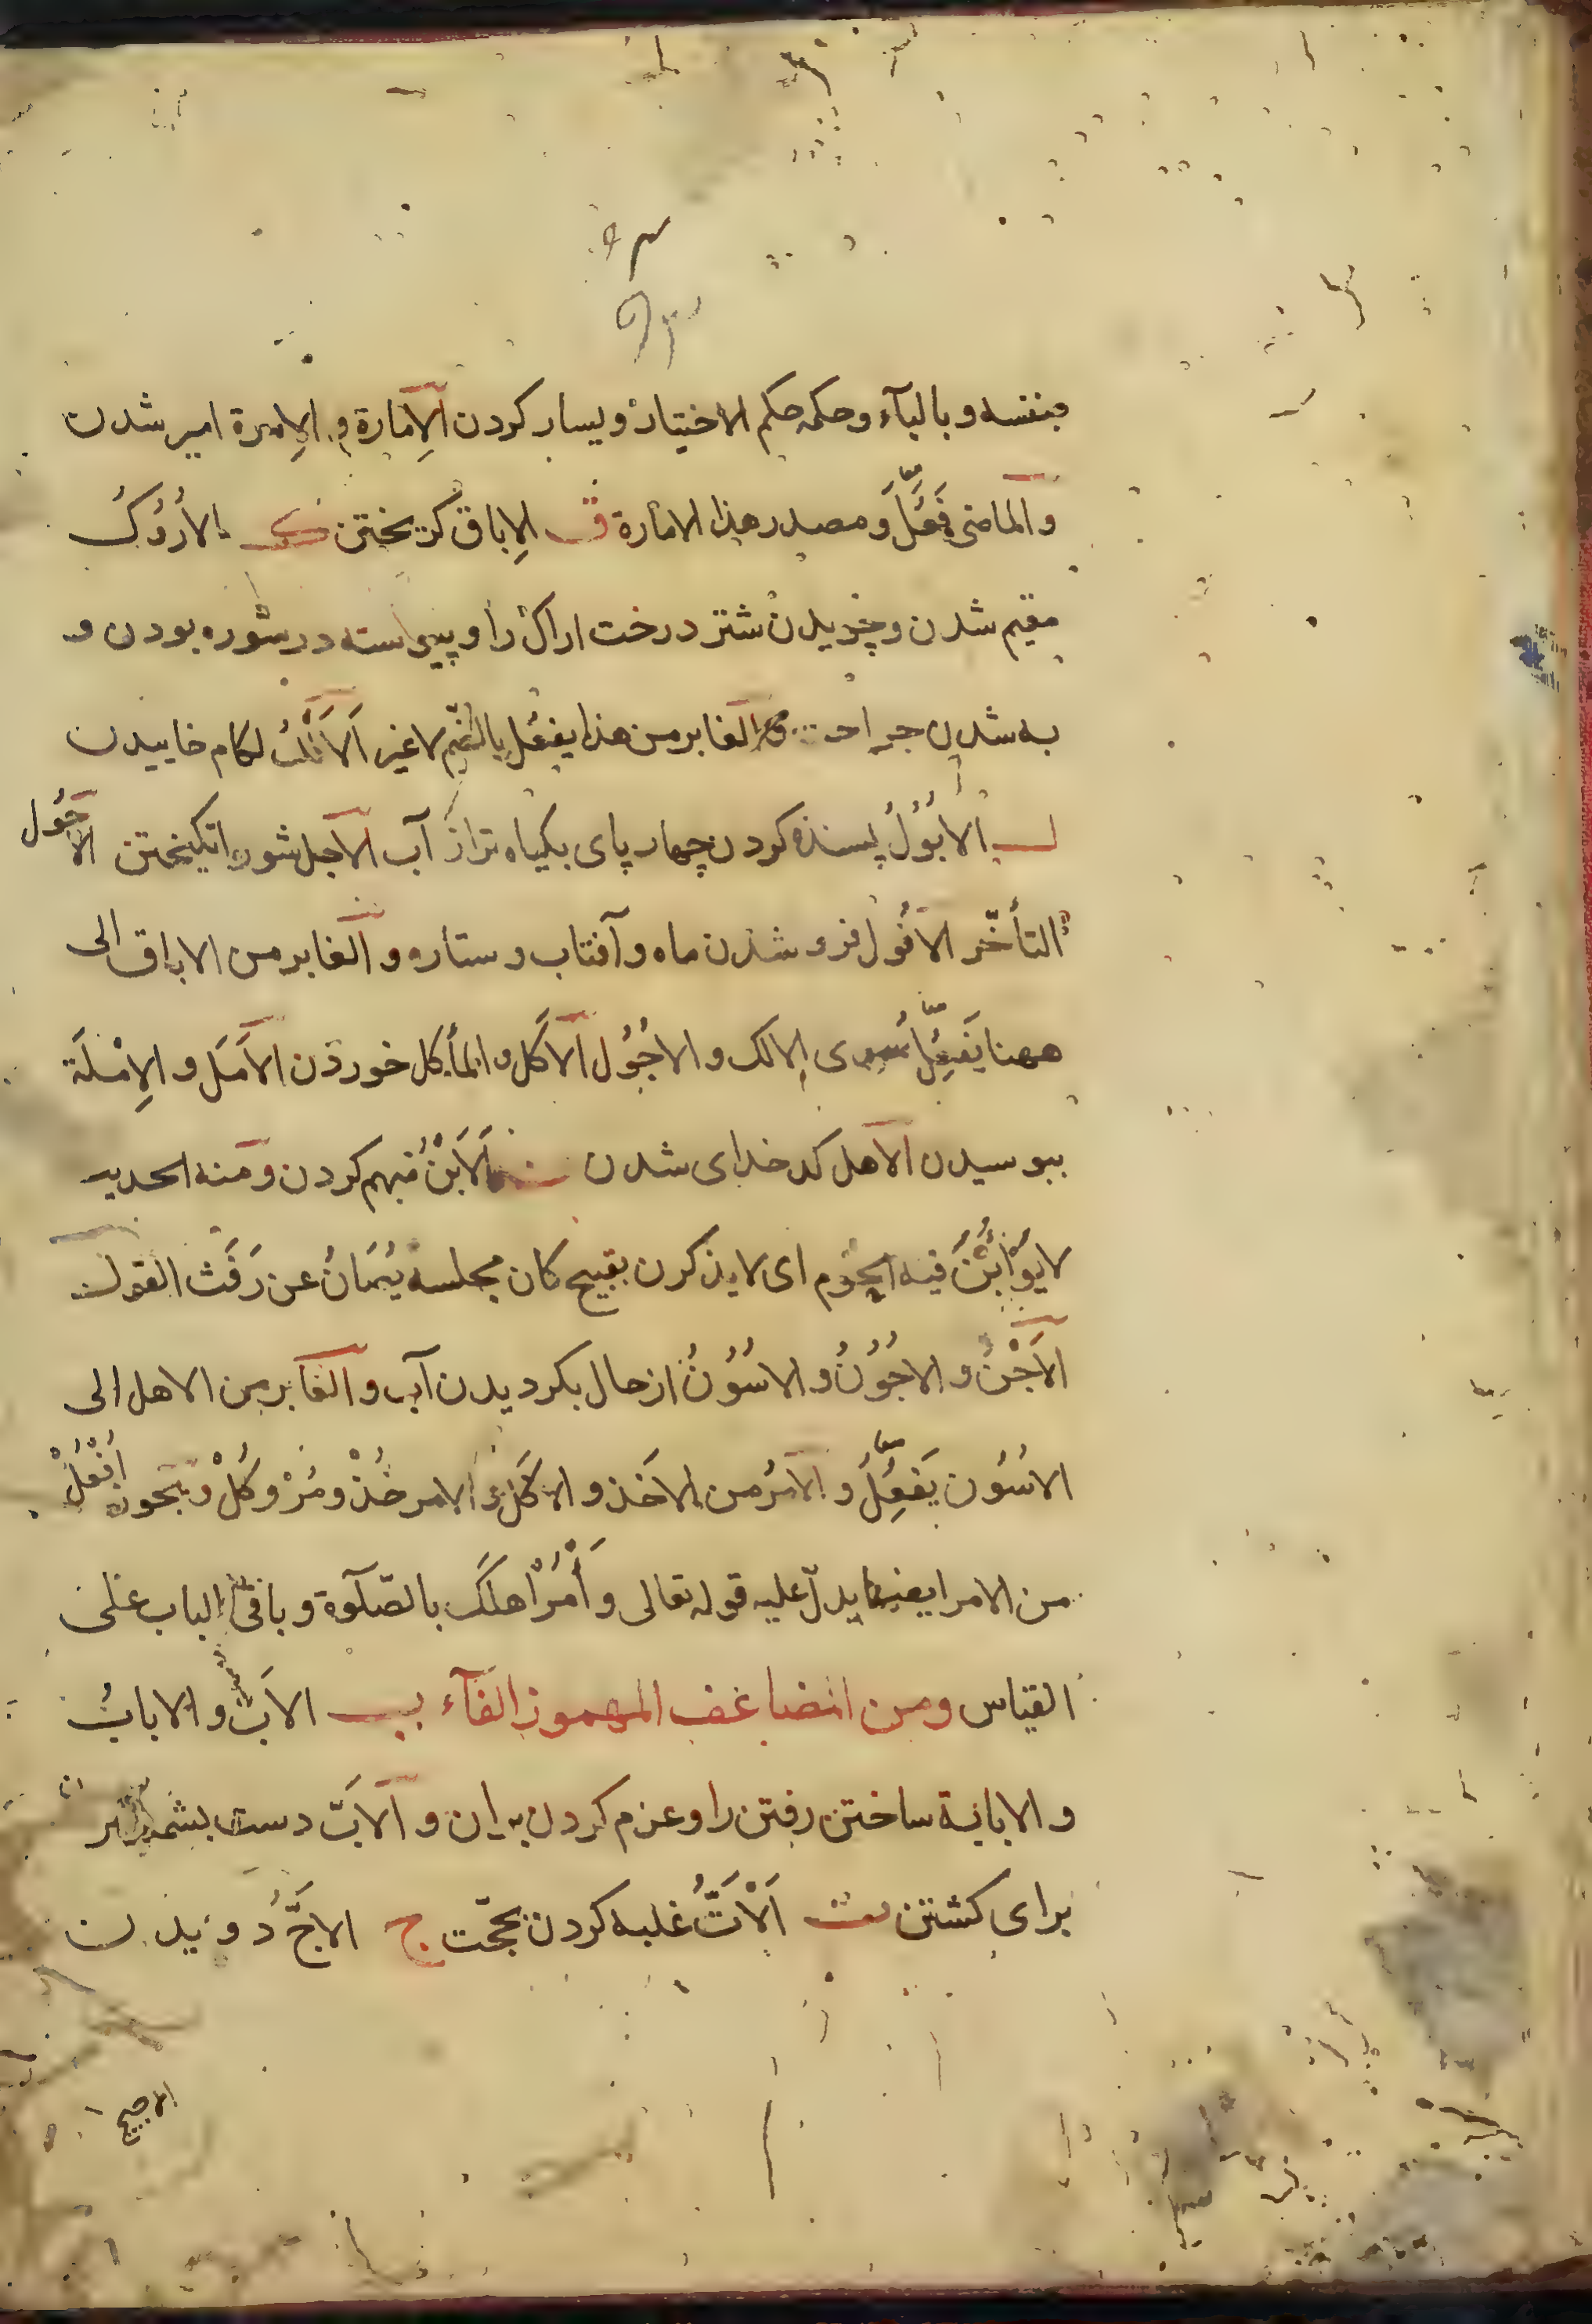 بنفسه و بالبآء و حکمه حکم الاختیار و بسیار کردن الاِمَارة و الاِمرة امیر شدن
و الماضی فَعُلَ و مصدر هذا الامارة ق الاِباق کریختن ک الاُرُوکُ
مقیم شدن و چریدن شتر درخت اراک را و پیوسته در شوره بودن و
به شدن جراحت و الغابر من هذا یفعُل بالضّم لاغیر اَلاَلْكُ لکام خاییدن
ل الاُبُوْلُ بسنده کردن چهار پای بکیاه تر از آب الاجل شور انکیختن الاُجُول
التأخّر الاُفُول فرو شدن ماه و آفتاب و ستاره و الغابر من الاباق الی
ههنا یَفعُِل سوی الالک و الاجُوُل الاَکل و المأکل خوردن الاَمَل و الاِمْلَة
ببوسیدن الاهل کدخدای شدن ن اَلاَبْنُ متهم کردن و منه الحدیث
لا یؤْبَنُ فیه الحُرَم ای لا یذکرن بقبیح کان مجلسه یُصَانُ عن رَفَث القول
الاَجْنُ و الاجُوُنُ و الاسُوُنُ از حال بکردیدن آب و الغابر من الاهل الی
الاسُوُن یَفعُِلُ و الامرُ من الاَخذ و الاَکل و الامر خُذْ و مُرْ و کُلْ و یجوز اُفْعُلْ
من الامر ایضا یدلّ علیه قوله تعالی وَأْمُرْ اهلَکَ بالصّلوة و باقی الباب علی
القیاس و من المضاعف المهموز الفآء ب الاَبّ و الابابُ
و الابابة ساختن رفتن را و عزم کردن بر ان و الاَبّ دست بشمشیر
برای کشتن ت اَلاَتُّ غلبه کردن بحجّت ج الاجَّ دویدن
الاجیج